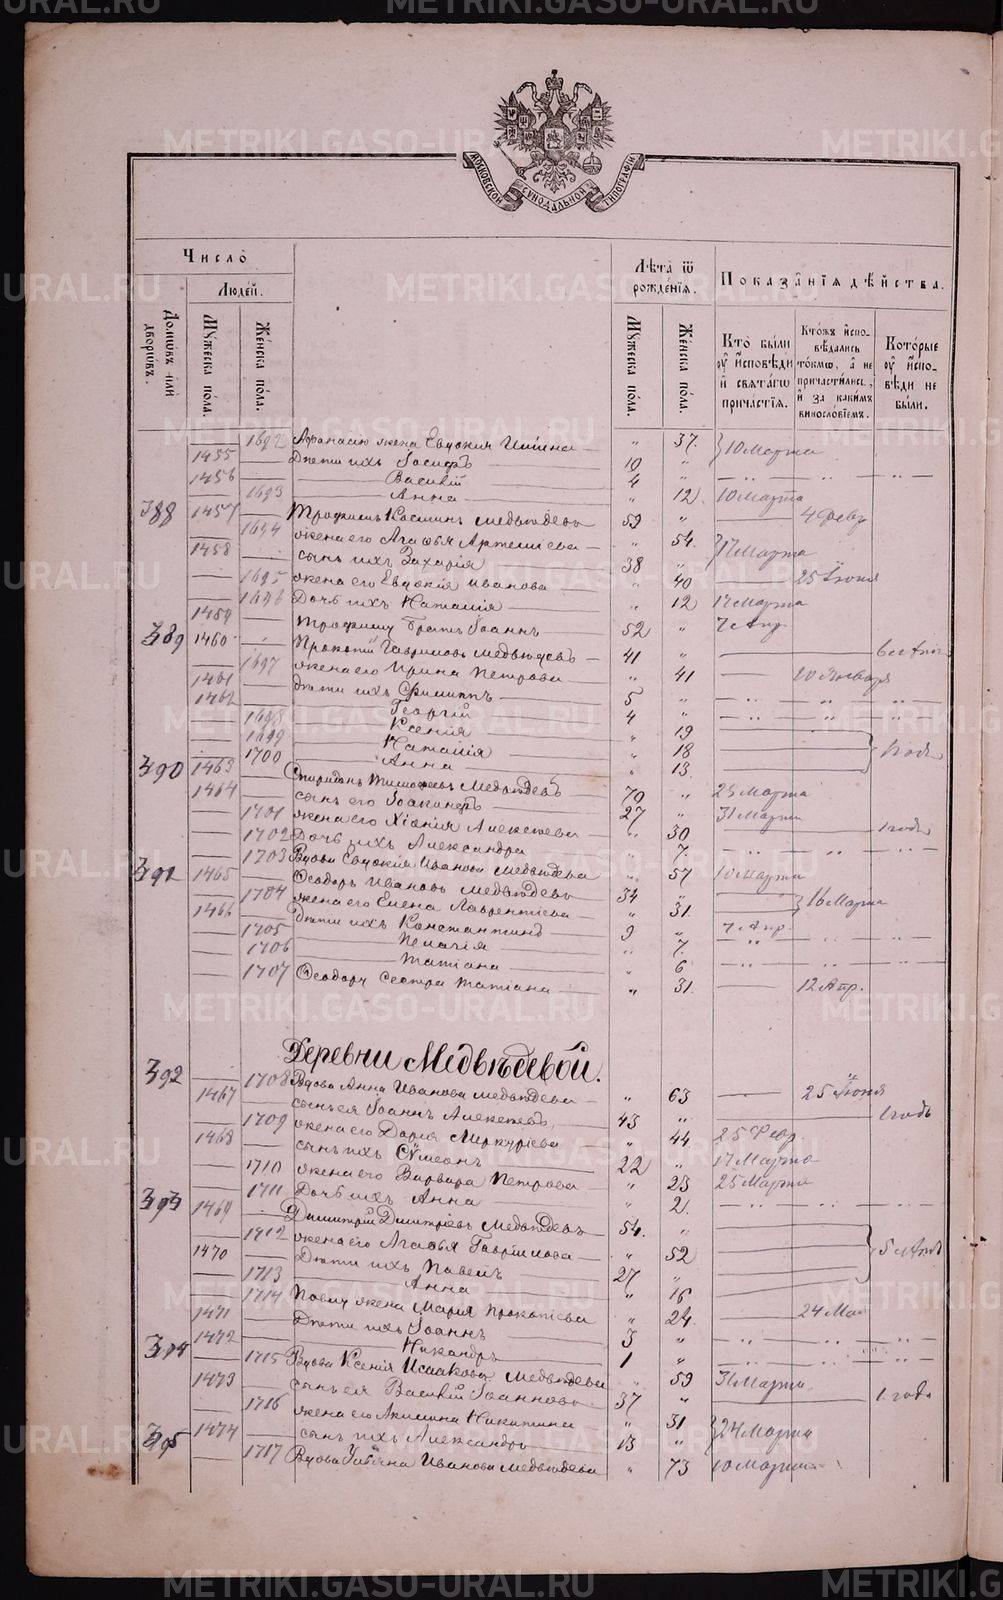 METRIKI.GASO-URAL.RU
МОСКОВСКОЙ СѴНОДАЛЬНОЙ ТИПОГРАФІИ
Число̀
Людей.
Лѣта ѿ рожденїѧ.
Показанїѧ дѣйства.
Домѡвъ или дворѡвъ.
Мужеска пола.
Женска пола.
Мужеска пола.
Женска пола.
Кто были оу исповѣди и свѧтагѡ причастїѧ.
Ктожъ исповѣдались токмѡ, а не причастились, и за какимъ винословїемъ.
Которые оу исповѣди не были.
1692 Афанасію жена Евдокия Ильина — " 37. 10 Марта
1455 — Дѣти ихъ Іосифъ — 10 "
1456 — Василій — 4 " — — —
1693 Анна — " 12. 10 Марта
388 1457 — Трофимъ Косминъ Медвѣдевъ 59 " — 4 Февр
1694 жена его Агафья Артемьева — " 54. 17 Марта
1458 — сынъ ихъ Захарія — 38 "
1695 жена его Евдокія Иванова — " 40 — 25 Іюня
1696 Дочь ихъ Наталія — " 12 17 Марта
1459 — Трофиму братъ Іоаннъ — 52 " 7 Апр
389 1460 — Прокопій Гавриловъ Медвѣдевъ — 41 "
1697 жена его Ирина Петрова — " 41 — 20 Января
1461 — дѣти ихъ Филиппъ — 5 " — — —
1462 — Георгій — 4 " — — —
1698 Ксенія — " 19
1699 Наталія — " 18 1 годъ
1700 Анна — " 13.
390 1463 — Спиридонъ Тимофеевъ Медвѣдевъ — 70 " 25 Марта
1464 — сынъ его Іоакимъ — 27 " 31 Марта
1701 жена его Хіонія Алексѣева — " 30 — 1 годъ
1702 Дочь ихъ Александра " 7 — — —
1703 Вдова Евдокія Иванова Медвѣдева " 57 10 Марта
391 1465 — Ѳеодоръ Ивановъ Медвѣдевъ 34 "
1704 жена его Елена Лаврентіева — " 31. 16 Марта
1466 — Дѣти ихъ Константинъ — 9 " 7 Апр.
1705 Пелагія — " 7. — — —
1706 Татіана — " 6 — — —
1707 Ѳеодору сестра Татіана — " 31. — 12 Апр.
Деревни Медвѣдевой.
392 1708 Вдова Анна Иванова Медвѣдева — " 63 — 25 Іюня
1467 — сынъ ея Іоаннъ Алексѣевъ, 43 " — 1 годъ
1709 жена его Дарія Меркуріева " 44 25 Февр.
1468 — сынъ ихъ Сѵмеонъ — 22 " 17 Марта
1710 жена его Варвара Петрова — " 23 25 Марта
1711 Дочь ихъ Анна — " 2. — — —
393 1469 — Димитрій Димитріевъ Медвѣдевъ 54. "
1712 жена его Агафья Гавріилова — " 52
1470 — Дѣти ихъ Павелъ — 27 "
1713 Анна — " 16
1714 Павлу жена Марія Прокопіева " 24 — 24 Мая
1471 — Дѣти ихъ Іоаннъ — 3 " — — —
1472 — Никандръ — 1 " — — —
394 1715 Вдова Ксенія Исаакова Медвѣдева " 59 31 Марта
1473 — сынъ ея Василій Іоанновъ — 37 " — 1 годъ
1716 жена его Акилина Никитина " 31 24 Марта
1474 — сынъ ихъ Александръ — 13 "
395 1717 Вдова Иванова Медвѣдева " 73 10 Марта